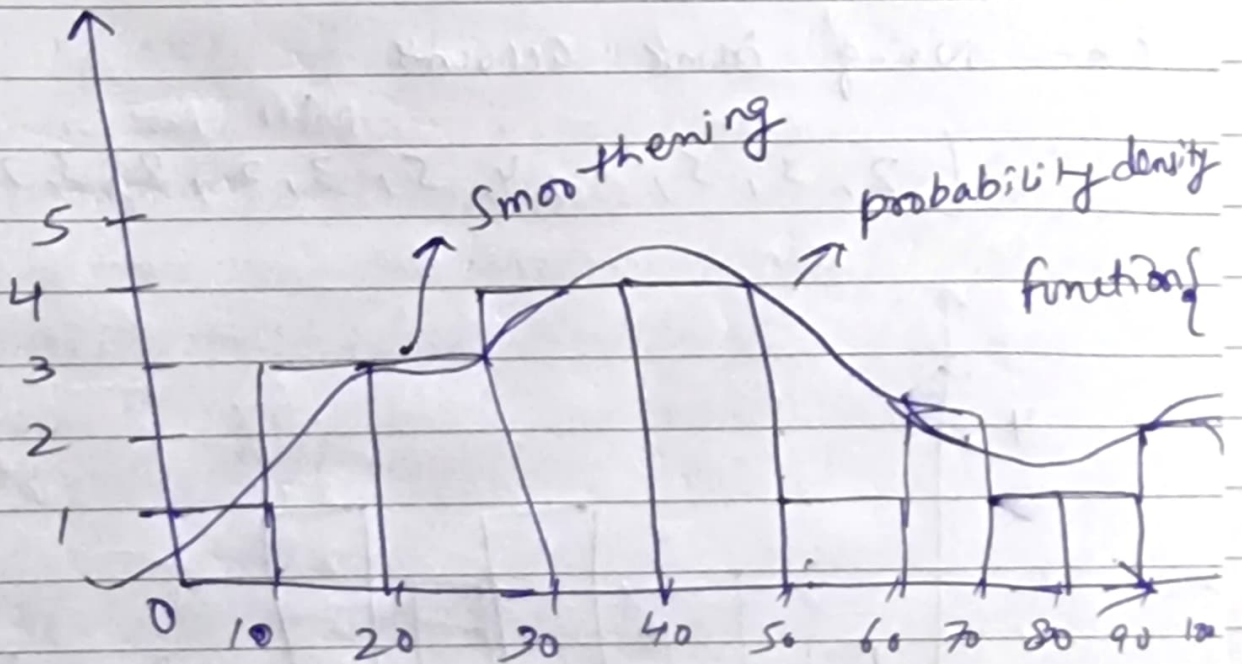 Smoothening
probability density
function
5
4
3
2
1
0 10 20 30 40 50 60 70 80 90 100